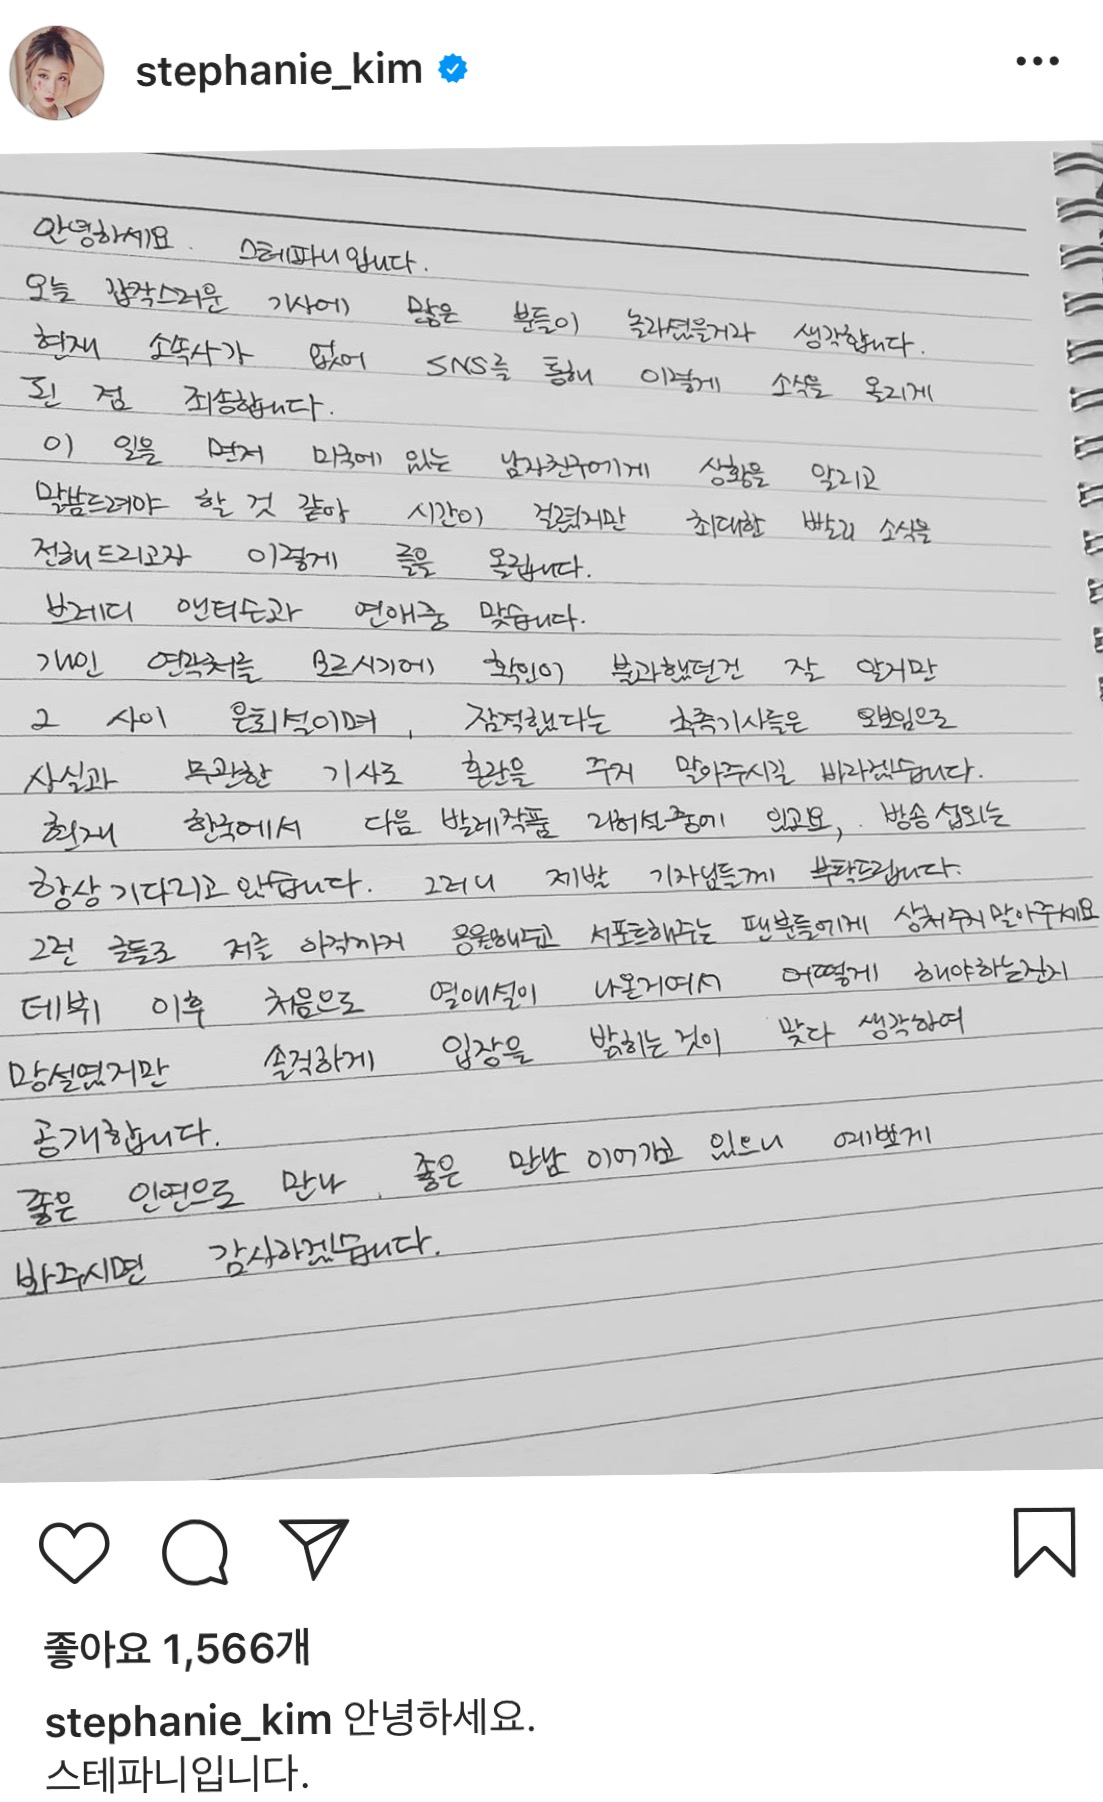 stephanie_kim
안녕하세요. 스테파니입니다.
오늘 갑작스러운 기사에 많은 분들이 놀라셨을거라 생각합니다.
현재 소속사가 없어 SNS를 통해 이렇게 소식을 올리게
된 점 죄송합니다.
이 일을 먼저 미국에 있는 남자친구에게 상황을 알리고
말씀드려야 할 것 같아 시간이 걸렸지만 최대한 빨리 소식을
전해드리고자 이렇게 글을 올립니다.
브레디 앤더슨과 연애중 맞습니다.
개인 연락처를 모르시기에 확인이 불과했던건 잘 알지만
그 사이 은퇴설이며, 잠적했다는 추측기사들은 오보임으로
사실과 무관한 기사로 혼란을 주지 말아주시길 바라겠습니다.
현재 한국에서 다음 발레작품 리허설중에 있고요, 방송 섭외는
항상 기다리고 있습니다. 그러니 제발 기자님들께 부탁드립니다.
그런 글들로 저를 아직까지 응원해주고 서포트해주는 팬분들에게 상처주지 말아주세요
데뷔 이후 처음으로 열애설이 나온거여서 어떻게 해야하는진지
망설였지만 솔직하게 입장을 밝히는 것이 맞다 생각하여
공개합니다.
좋은 인연으로 만나, 좋은 만남 이어가고 있으니 예쁘게
봐주시면 감사하겠습니다.
좋아요 1,566개
stephanie_kim 안녕하세요.
스테파니입니다.